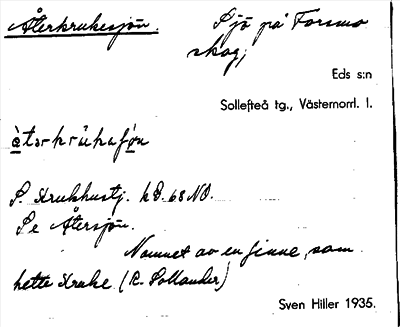 Återkrukesjön.
Sjö på Forsmo
skog,
Eds s:n
Sollefteå tg., Västernorrl. l.
S. Krukhustj. kB. 68 NO.
Se Återsjön.
Namnet av en finne, som
hette Kruke. (R. Sollander)
Sven Hiller 1935.